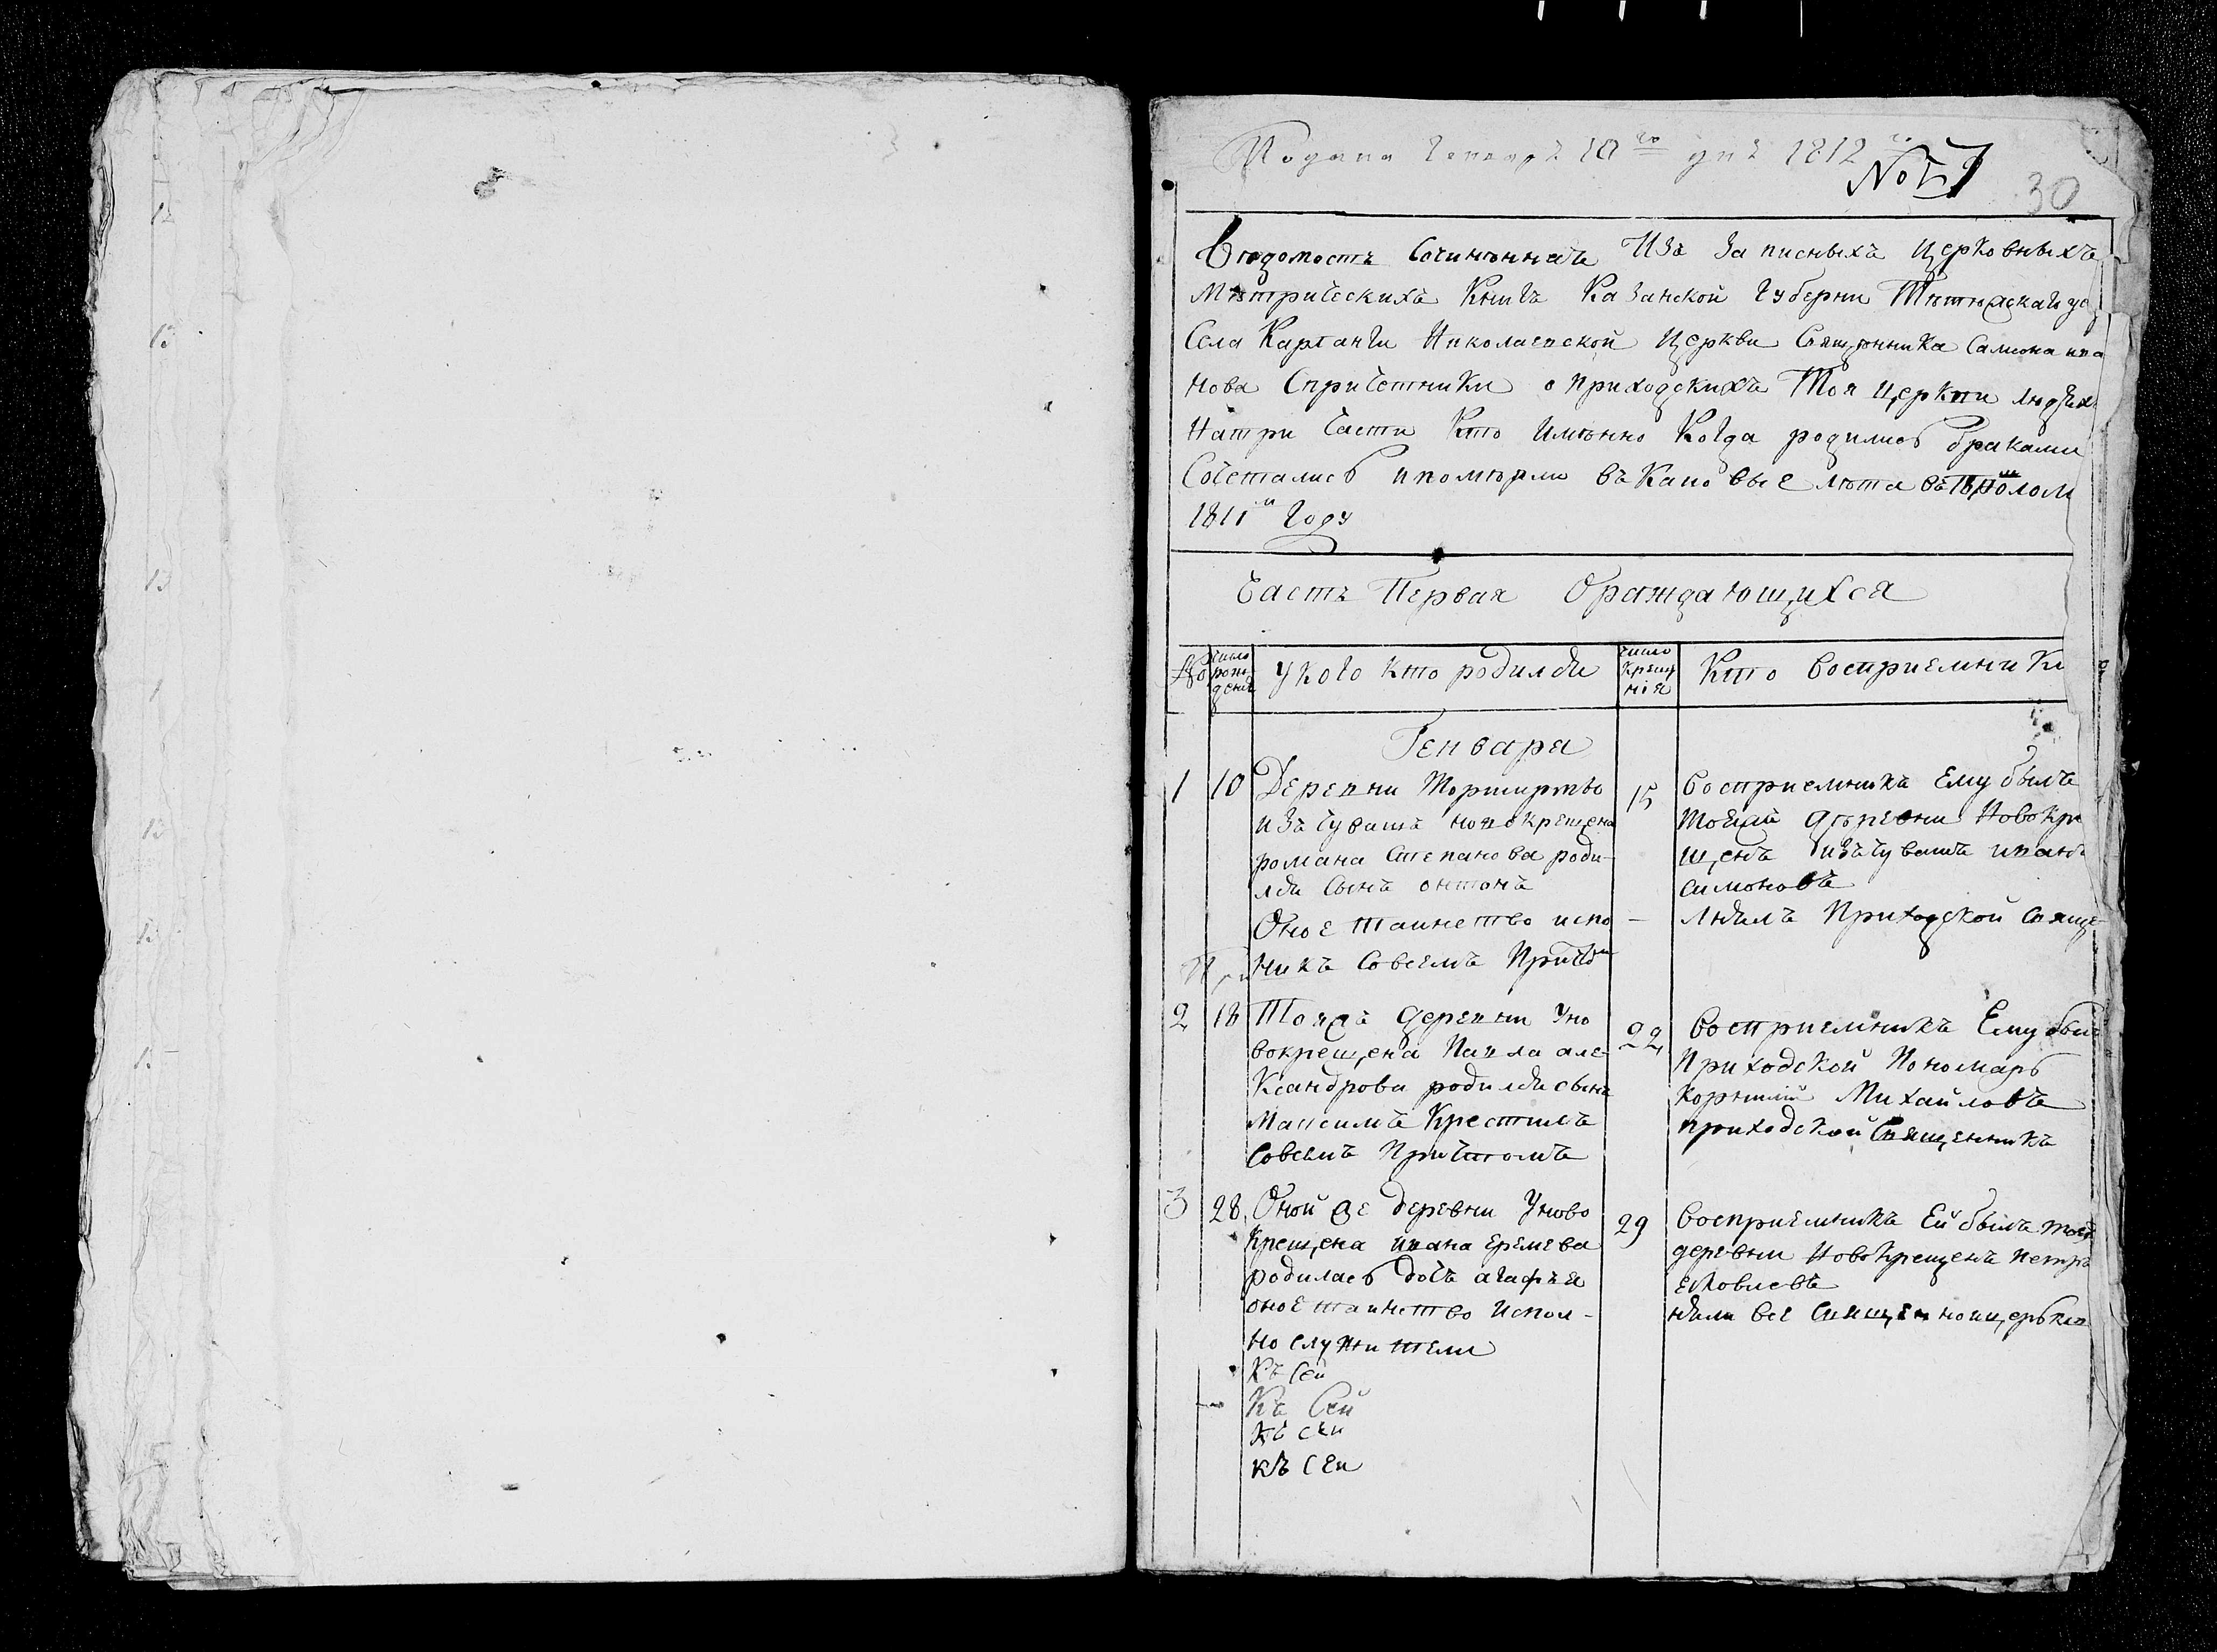 Подана Генваря 10го дня 1812го
№ 7
30
Ведомость Сочиненная Изъ Записныхъ Церковныхъ
Метрическихъ Книгъ Казанской Губерни
Села Николаевской Церкви Священника Симиона ива
нова Спричетники о приходскихъ Тоя Церкви людях
Натри Части Кто Имянно Когда родились браками
Сочетались ипомерли въ Каковые лета
1811м Году
Часть Первая Ораждающихся
№ число рождения Укого кто родился число крещения Кто восприемники
Генваря
1 10 Деревни
изъ Чувашъ новокрещена
романа Степанова роди-
лся Сынъ антонъ
Оное таинство испо
никъ Совсемъ Причто
15 Восприемникъ Ему былъ
деревни Новокре
щенъ изъ Чувашъ иванъ
симоновъ
- лнялъ Приходской Свяще-
2 18 Тояжъ деревни Уно
вокрещена Павла але-
Ксандрова родился сынъ
Максимъ Крестилъ
Совсемъ Причтомъ
22 Восприемникъ Ему былъ
Приходской Пономарь
Корнилий Михайловъ
приходской Священникъ
3 28 Оной же деревни Уново
Крещена ивана Еремеева
родилась дочь агафья
оное таинство испол-
но служители
29 Восприемникъ Ей былъ тойж
деревни Новокрещенъ петръ
яковлевъ
няли все Священноицерьков
Къ Сей
Къ Сей
Къ Сеи
Къ Сеи